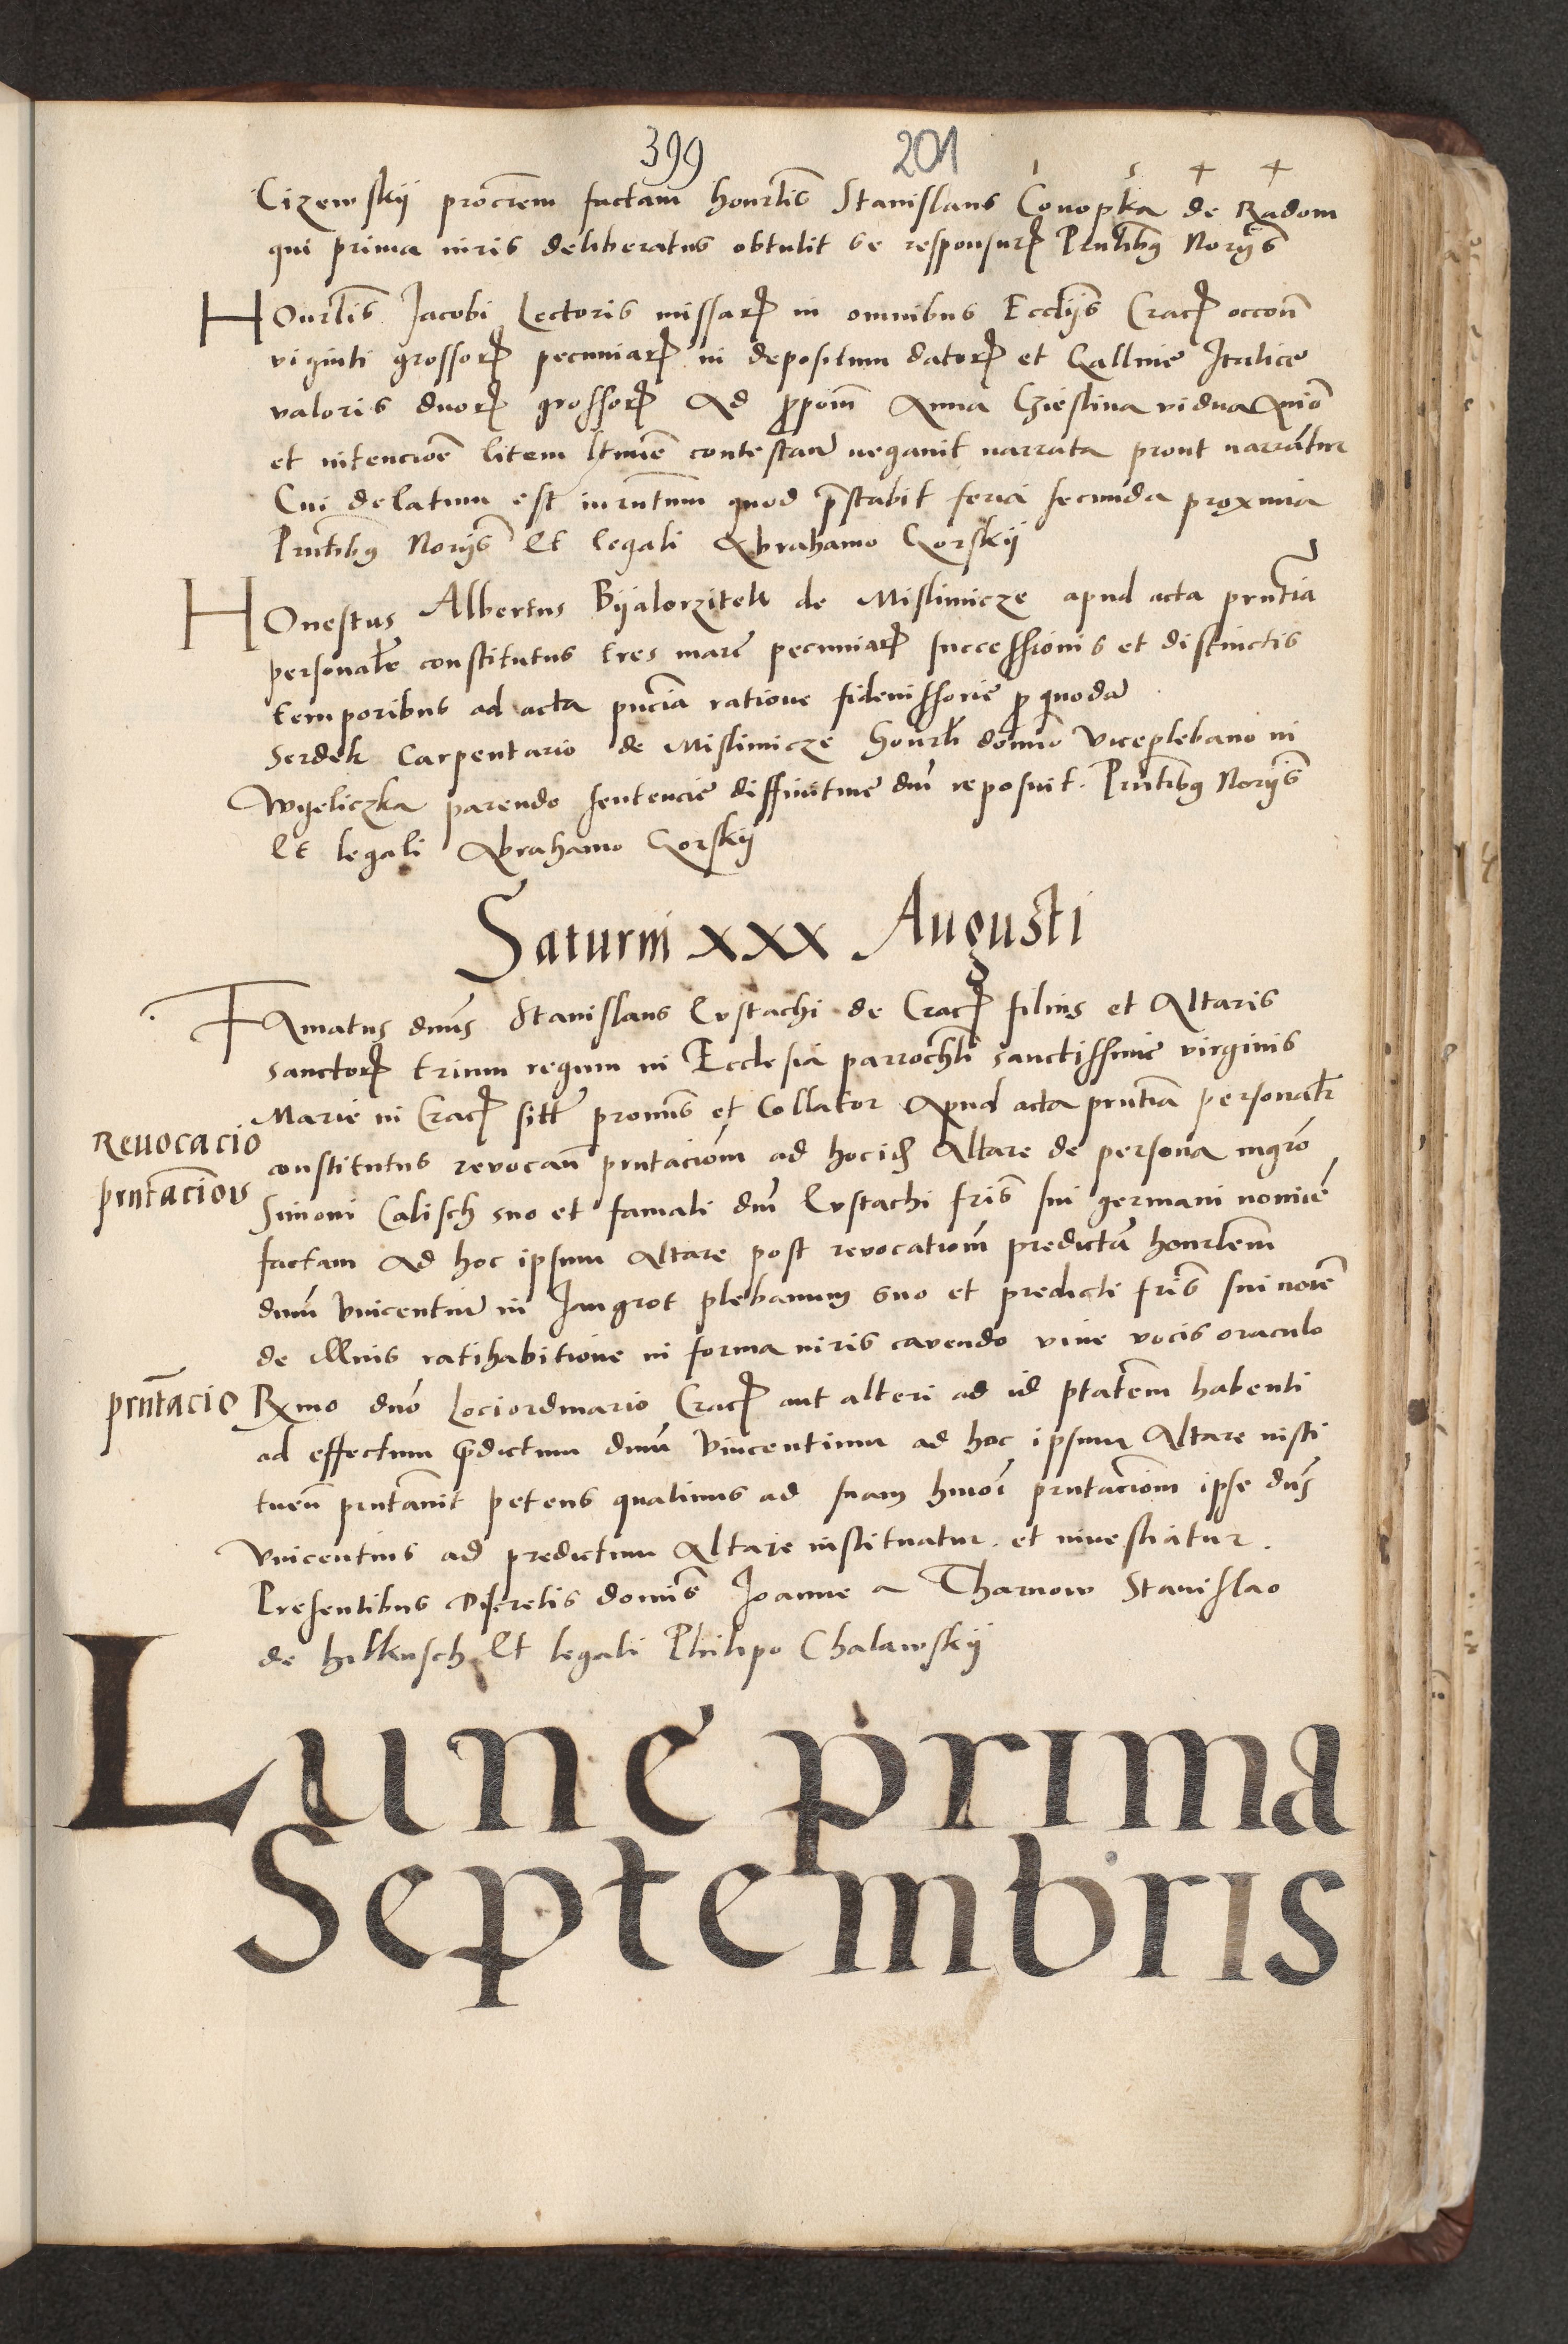 399 201
Cizewskij procrem factam honrlis Stanislaus Conopka de Radom
qui prima iuris deliberatus obtulit se responsurum Prntibus Norijs
Honrlis Jacobi Lectoris missarum in omnibus Ecclijs Crac occon
viginti grossorum pecuniarum in depositum datorum et Galline Italice
valoris duorum grossorum Ad ppom Anna vidua
et intencioe litem ltimie contestam negauit narrata prout narrantur
Cui delatum est iurntum quod prestabit feria secunda proxima
Prntibus Norijs Et legali Abrahamo Gorskij
Honestus Albertus Bijalorzitek de Mislimicze apud acta prntia
personalr constitutus tres marc pecuniarum successiuis et distinctis
temporibus ad acta pncia ratione fideiussorie pro quodam
Serdek Carpentario de Mislimicze honrli domino viceplebano in
Wyeliczka parendo sentencie diffinitiue dni reposuit. Prntibus Norijs
Et legali Abrahamo Gorskij
Saturni xxx Augusti
Famatus dnus Stanislaus Eustachi de Crac filius et Altaris
sanctorum trium regum in Ecclesia parrochli sanctissime virginis
Marie in Crac sitt pronus et Collator Apud acta prntia personalr
Reuocacio
prntacionis
constitutus revocan prntaciom ad hoc id Altare de persona mgro
Simoni Calisch suo et famati dni Eustachi fris sui germani nomine
factam Ad hoc ipsum Altare post revocatiom predictam honrlem
dnum Vincentium in Jangrot plebanum suo et predicti fris sui noie
de illius ratihabitione in forma iuris cavendo viue vocis oraculo
prntacio
Rxmo dno Lociordinario Crac aut alteri ad id ptatem habenti
ad effectum predictum dnum Vincentium ad hoc ipsum Altare insti
tuen prntauit petens quatinus ad suam hmoi prntaciom ipse dns
Vincentius ad predictum Altare instituatur. et inuestiatur.
Presentibus Discretis dominis Joanne a Tharnow Stanislao
de hilkusch Et legali Philipo Chalawskij
Lune prima
Septembris